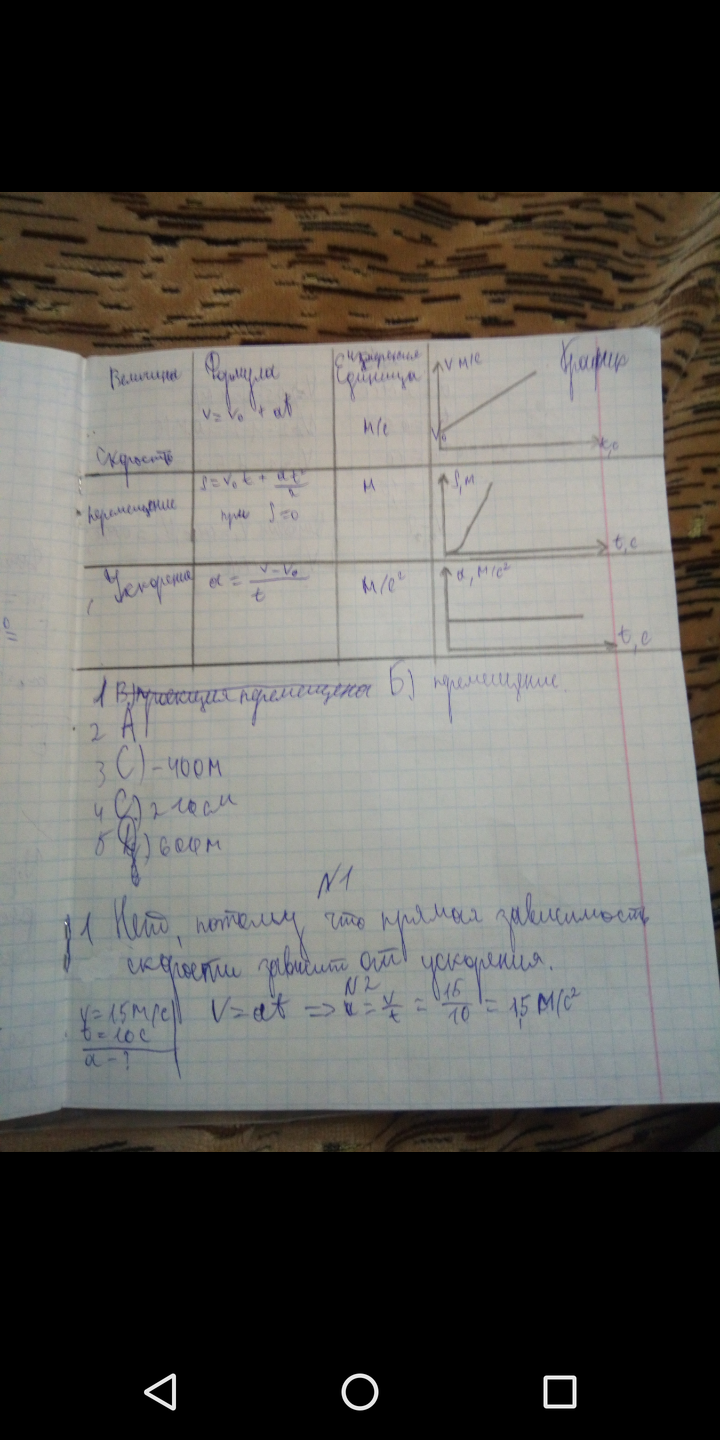 Величина Формула Единица измерения График
Скорость V = V₀ + at м/с V м/с V₀ t,c
перемещение S = V₀ t + at²/2 м S, м t, c
при S=0
Ускорение a = V – V₀ / t м/с² a, м/с² t, c
1 В) проекция перемещены Б) перемещение.
2 А)
3 С) – 400 м
4 С) 2 10 см
5 600 м
N1
1 Нет, потому что прямая зависимость
скорости зависит от ускорения.
N2
V = 15 м/с V = at ⇒ a = V/t = 15/10 = 1,5 м/с²
t = 10 c
a – ?